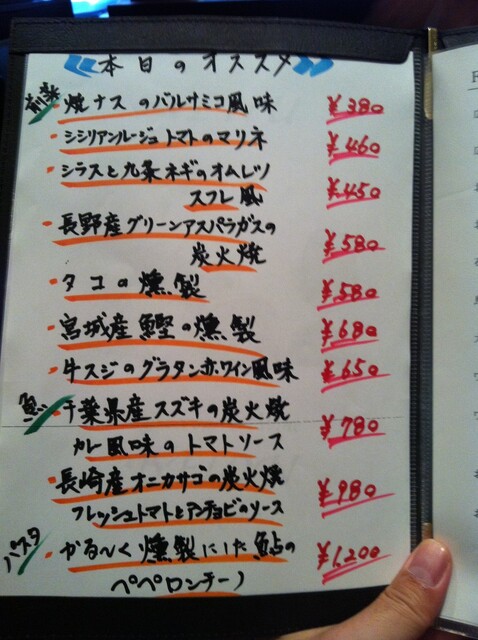 本日のオススメ
前菜
焼ナスのバルサミコ風味 ¥380
・シシリアンルージュトマトのマリネ ¥460
・シラスと九条ネギのオムレツ
スフレ風 ¥450
・長野産グリーンアスパラガスの
炭火焼 ¥580
・タコの燻製 ¥580
・宮城産鰹の燻製 ¥680
・牛スジのグラタン赤ワイン風味 ¥650
魚
千葉県産スズキの炭火焼
カレー風味のトマトソース ¥780
・長崎産オニカサゴの炭火焼
フレッシュトマトとアンチョビのソース ¥980
パスタ
・かる〜く燻製にした鮎の
ペペロンチーノ ¥1,200